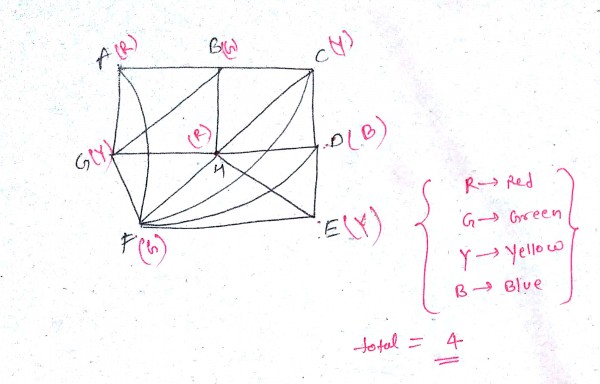 A(R) B(G) C(Y)
G(Y) (R) D(B)
H
F(G) E(Y)
R → Red
G → Green
Y → Yellow
B → Blue
total = 4